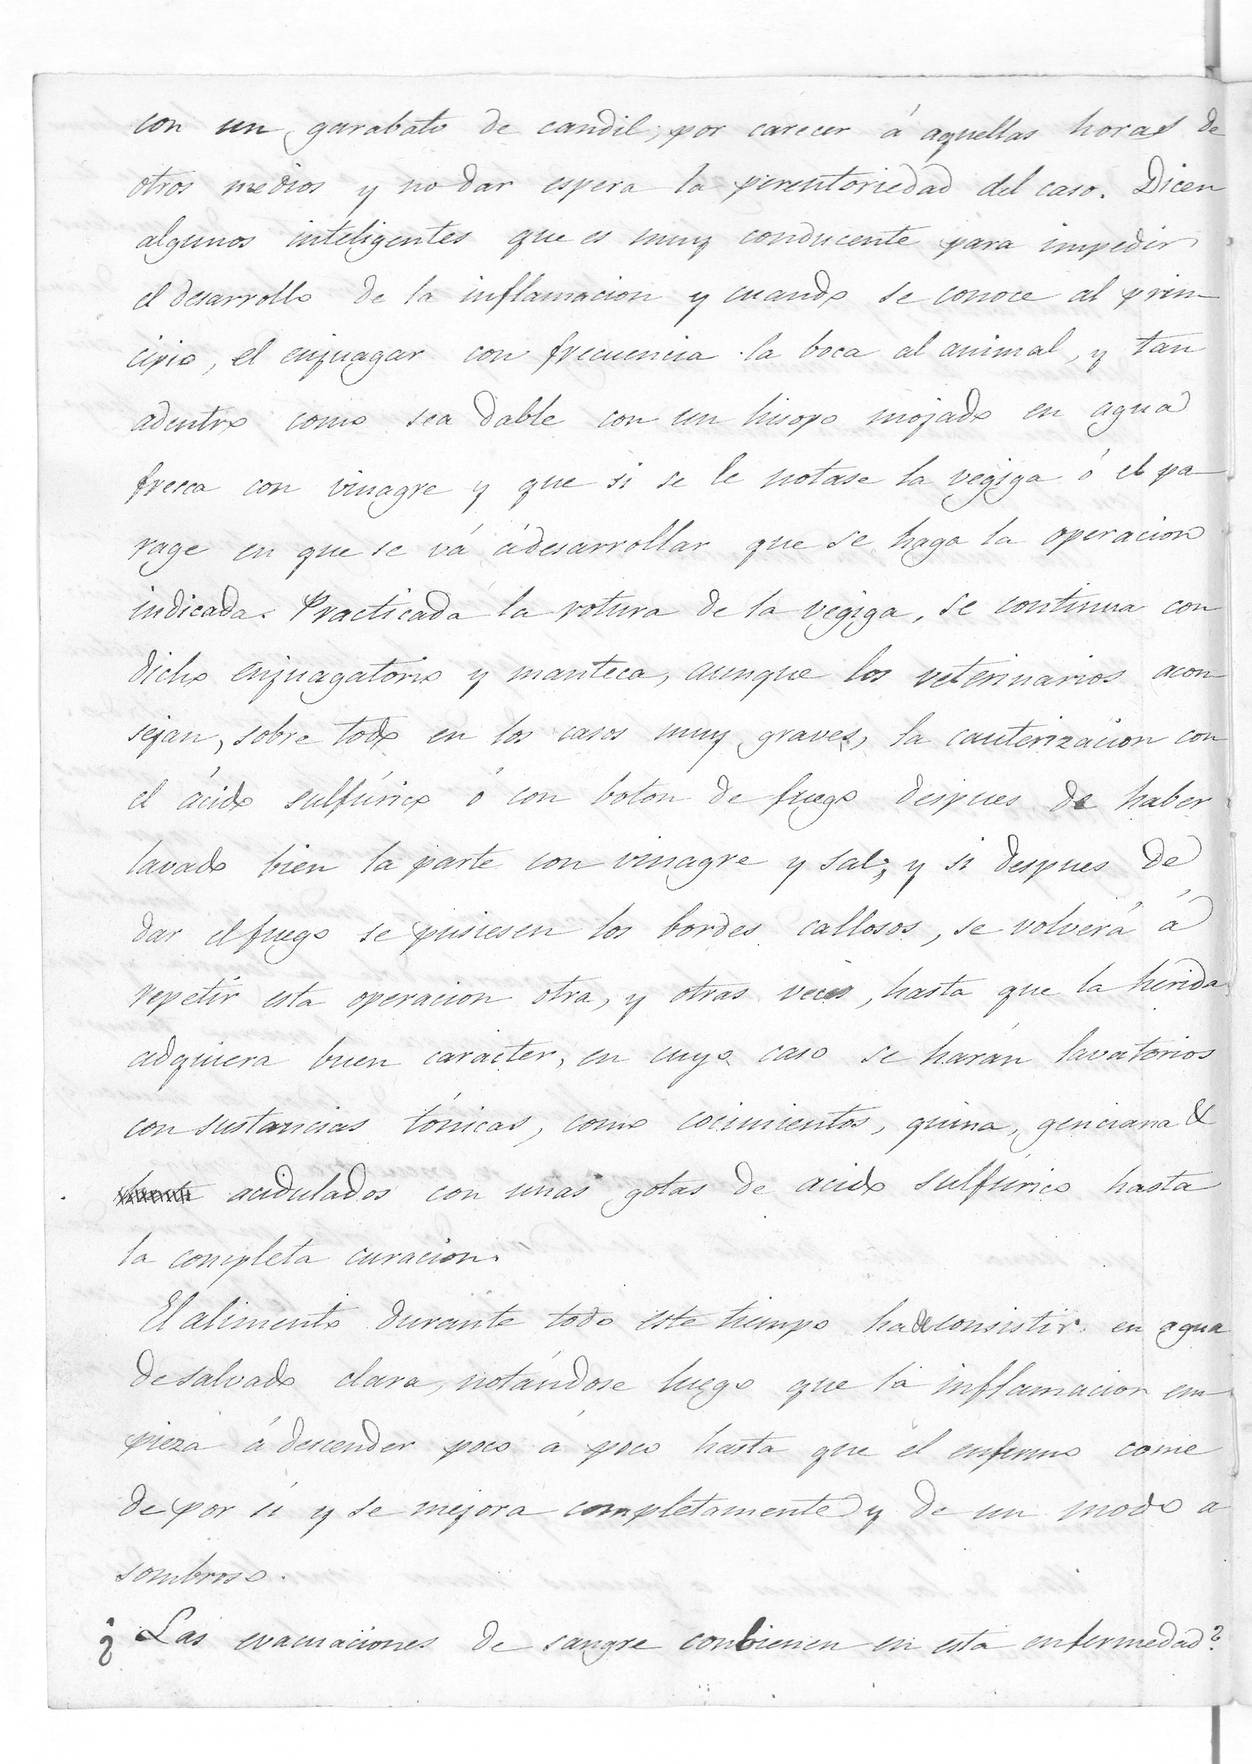 con un garabato de candil, por carecer á aquellas horas de
otros medios y no dar espera la perentoriedad del caso. Dicen
algunos inteligentes que es muy conducente para impedir
el desarrollo de la inflamacion y cuando se conoce al prin-
cipio, el enjuagar con frecuencia la boca al animal, y tan
adentro como sea dable con un hisopo mojado en agua
fresca con vinagre y que si se le notase la vegiga ó el pa-
rage en que se vá á desarrollar que se haga la operacion
indicada. Practicada la rotura de la vegiga, se continua con
dicho enjuagatorio y manteca, aunque los veterinarios acon-
sejan, sobre todo en los casos muy graves, la cauterizacion con
el ácido sulfúrico ó con boton de fuego despues de haber
lavado bien la parte con vinagre y sal; y si despues de
dar el fuego se pusiesen los bordes callosos, se volverá á
repetir esta operacion otra, y otras veces, hasta que la herida
adquiera buen caracter, en cuyo caso se harán lavatorios
con sustancias tónicas, como cocimientos, quina, genciana &
acidulados con unas gotas de acido sulfúrico hasta
la completa curacion.
El alimento durante todo este tiempo ha de consistir en agua
de salvado clara, notándose luego que la inflamacion em-
pieza á descender poco á poco hasta que el enfermo come
de por si y se mejora completamente y de un modo a
sombroso.
¿Las evacuaciones de sangre conbienen en esta enfermedad?